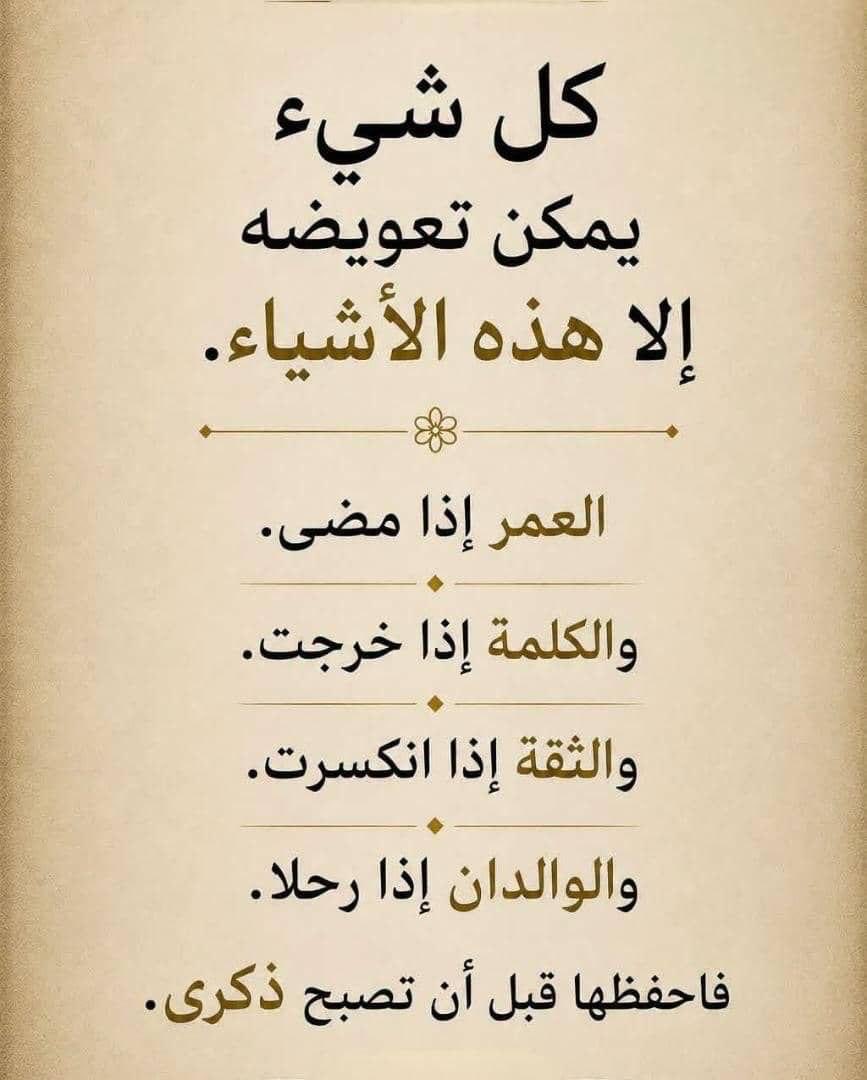 كل شيء
يمكن تعويضه
إلا هذه الأشياء.
العمر إذا مضى.
والكلمة إذا خرجت.
والثقة إذا انكسرت.
والوالدان إذا رحلا.
فاحفظها قبل أن تصبح ذكرى.